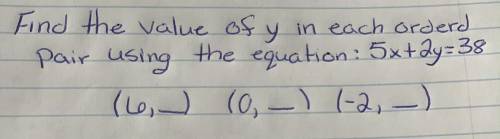 Find the value of y in each orderd
pair using the equation: 5x+2y=38
(6,_) (0, _) (-2, _)